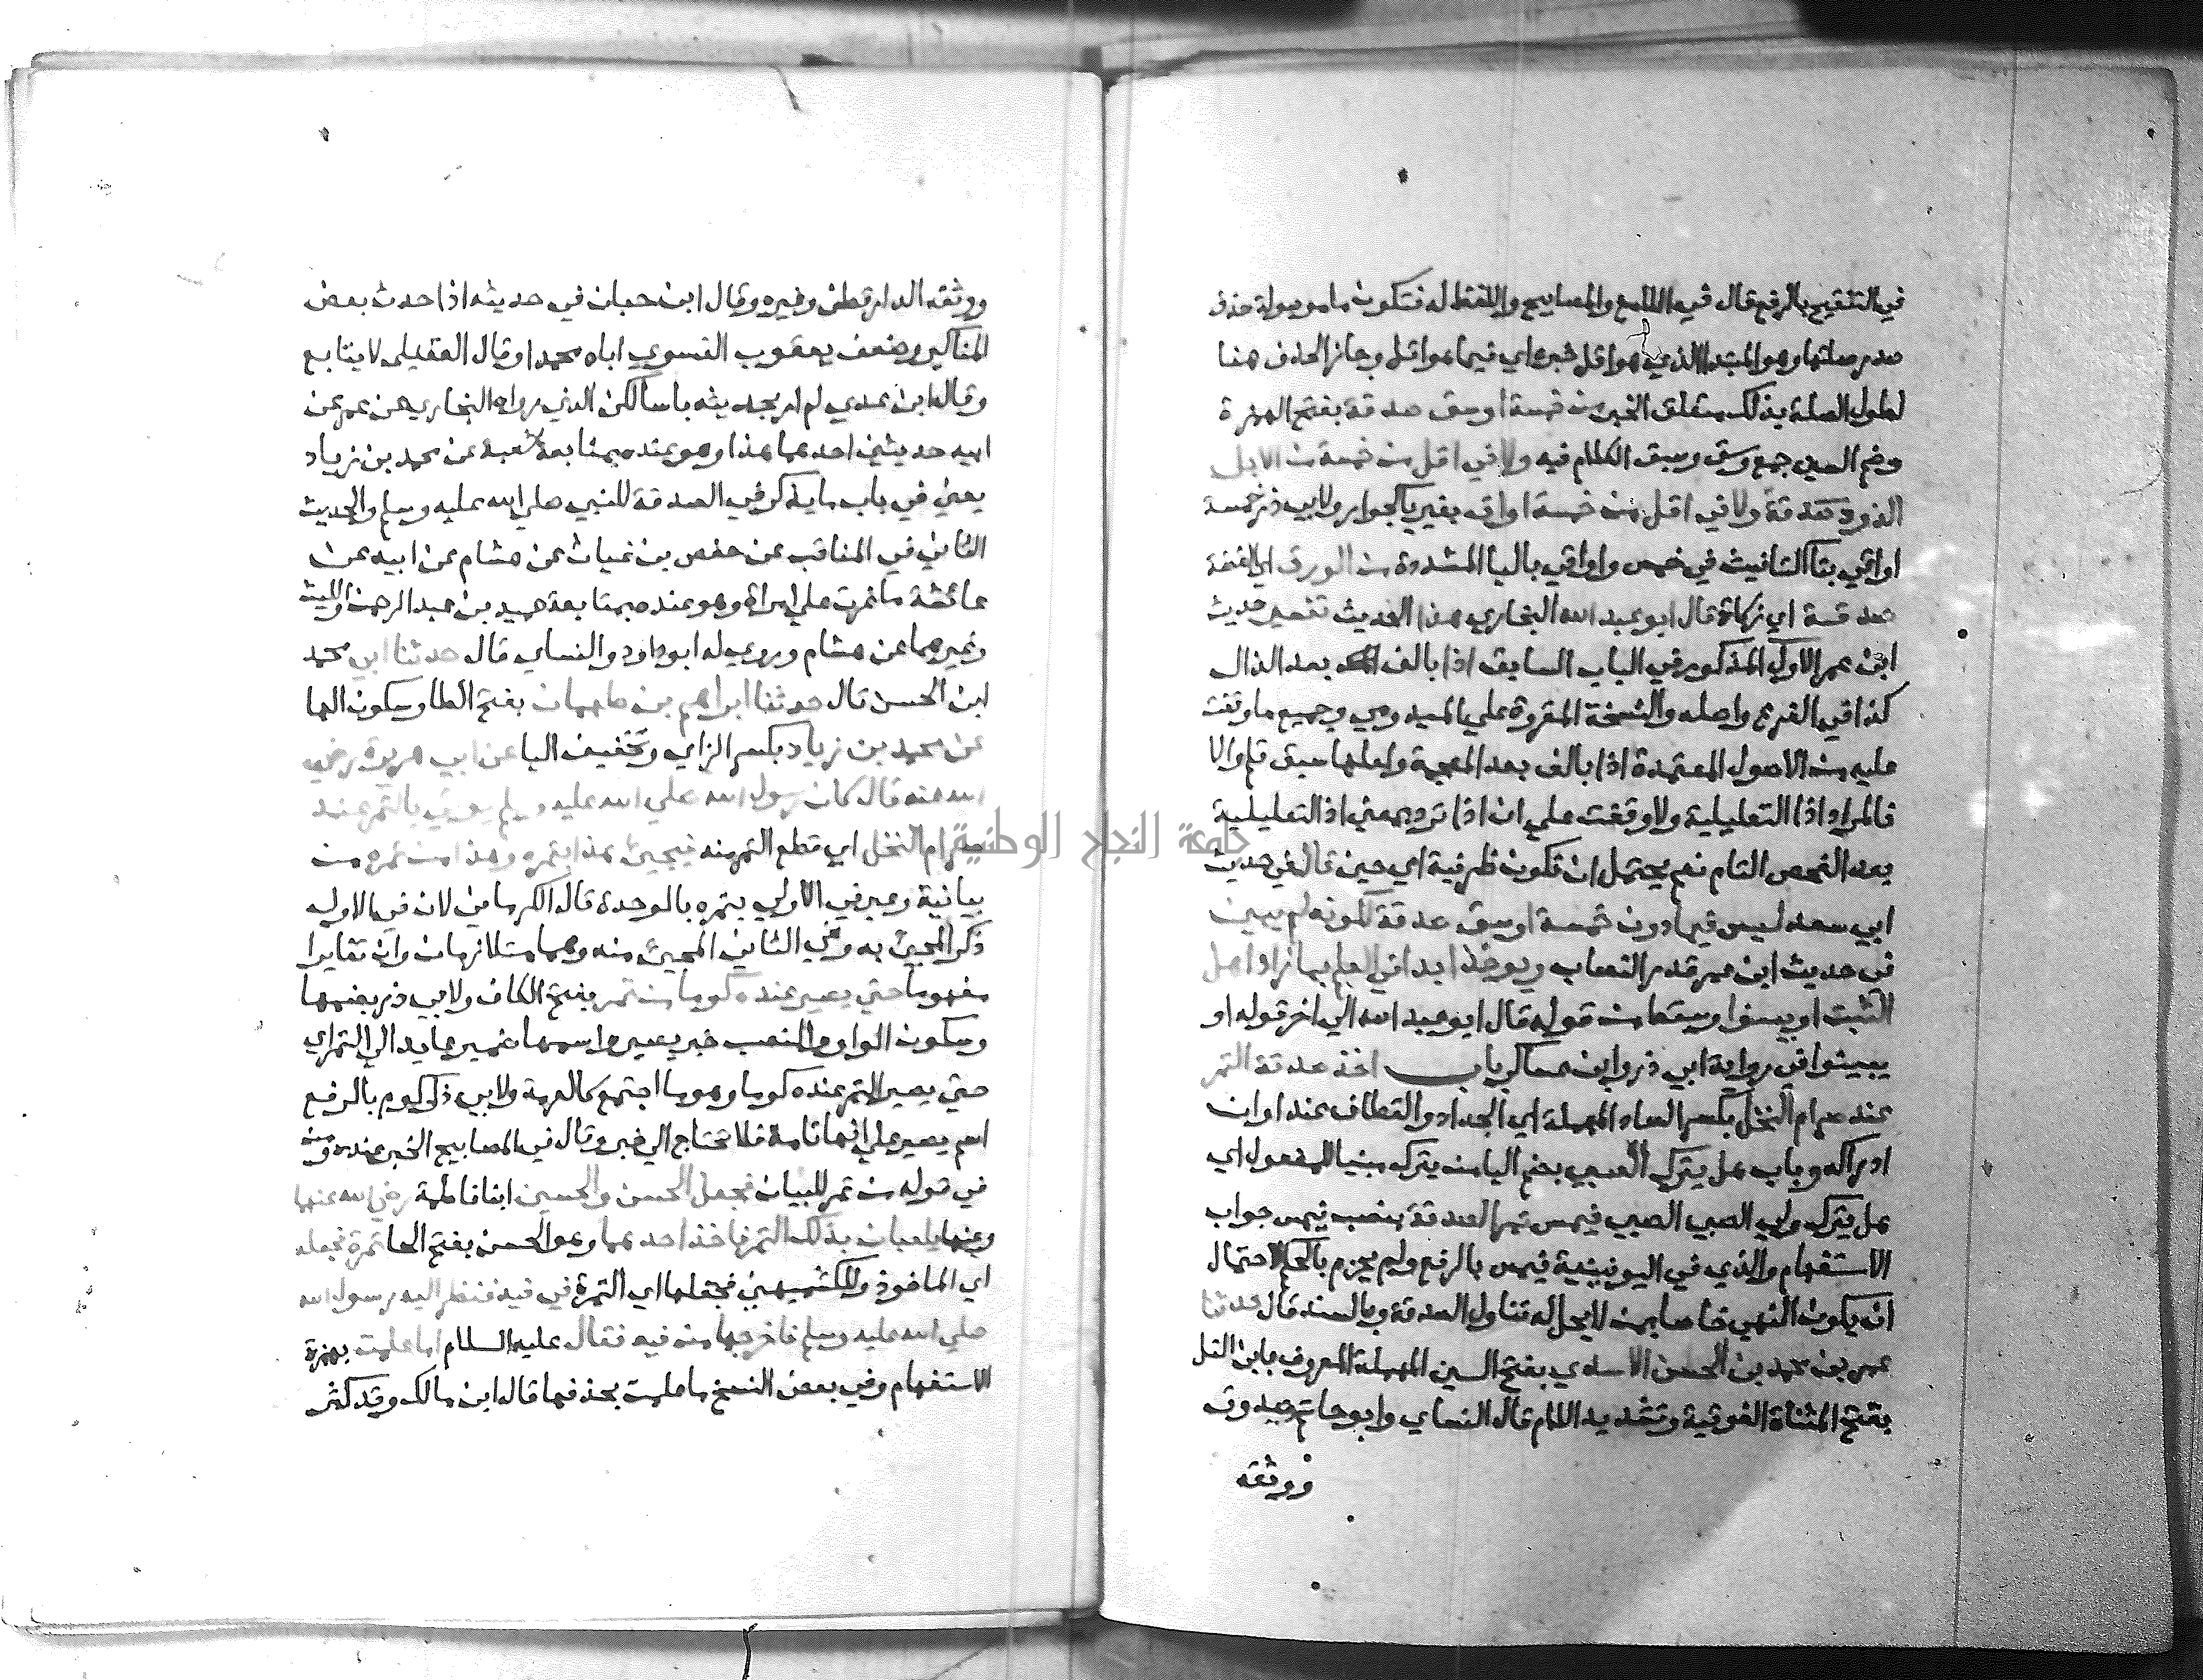 في التنقيح بالرفع قال في اللامع والمصابيح واللفظ له فتكون ما موصولة حذف
صدر صلتها وهو المبتدا الذي هو اقل خبره اي فيما هو اقل وجاز الحذف هنا
لطول الصلة بذلك متعلق الخبر من خمسة اوسق صدقة بفتح الهمزة
وضم السين جمع وسق وسبق الكلام فيه ولا في اقل من خمسة من الابل
الذود صدقة ولا في اقل من خمسة اواق بغير يا كجوار ولابي ذر خمسة
اواقي بتا التانيث في خمس واواقي باليا المشددة من الورق اي الفضة
صدقة اي زكاة قال ابو عبد الله البخاري هذا الحديث تفسير حديث
ابن عمر الاول المذكور في الباب السابق اذا بالف بعد الذال
كذا في الفرع واصله والنسخة المقروة علي الميدومي وجميع ما وقفت
عليه من الاصول المعتمدة اذا بالف بعد المعجمة ولعلها سبق قلم والا
فالمراد اذ التعليلية ولا وقفت علي ان اذا ترد بمعني اذ التعليلية
بعد الفحص التام نعم يحتمل ان تكون ظرفية اي حين قال في حديث
ابي سعد ليس فيما دون خمسة اوسق صدقة لكونه لم يبين
في حديث ابن عمر قدر النصاب ويوخذ ابدا في العلم بما زاد اهل
الثبت او بينوا وسقط من قوله قال ابو عبد الله الي اخر قوله او
بينوا في رواية ابي ذر وابن عساكر باب اخذ صدقة التمر
عند صرام النخل بكسر الصاد المهملة اي الجداد والقطاف عند اوان
ادراكه وباب هل يترك الصبي بضم اليا من يترك مبنيا للمفعول اي
هل يترك ولي الصبي الصبي فيمس تمر الصدقة بنصب فيمس جواب
الاستفهام والذي في اليونينية فيمس بالرفع ولم يجزم بالحكم لاحتمال
ان يكون النهي خاصا بمن لا يحل له تناول الصدقة وبالسند قال حدثنا
عمر بن محمد بن الحسن الاسدي بفتح السين المهملة المعروف بابن التل
بفتح المثناة الفوقية وتشديد اللام قال النساي وابو حاتم صدوق
ووثقه
ووثقه الدارقطني وغيره وقال ابن حبان في حديثه اذا حدث بعض
المناكير وضعف يعقوب الفسوي اباه محمدا وقال العقيلي لا يتابع
وقال ابن عدي لم ار بحديثه باسا لكن الذي رواه البخاري عن عمر عن
ابيه حديثين احدهما هذا وهو عنده بمتابعة شعبة عن محمد بن زياد
يعني في باب ما يذكر في الصدقة للنبي صلي الله عليه وسلم والحديث
الثاني في المناقب عن حفص بن غياث عن هشام عن ابيه عن
عائشة ما غرت علي امراة وهو عنده بمتابعة حميد بن عبد الرحمن والليث
وغيرهما عن هشام وروي له ابو داود والنساي قال حدثنا ابي محمد
ابن الحسن قال حدثنا ابراهيم بن طهمان بفتح الطا وسكون الها
عن محمد بن زياد بكسر الزاي وتخفيف اليا عن ابي هريرة رضي
الله عنه قال كان رسول الله صلي الله عليه وسلم يوتي بالتمر عند
صرام النخل اي قطع التمر منه فيجيئ هذا بتمره وهذا من تمره من
بيانية وعبر في الاولي بتمره بالموحدة قال الكرماني لان في الاول
ذكر المجيئ به وفي الثاني المجيئ منه وهما متلازمان وان تغايرا
مفهوما حتي يصير عنده كوما من تمر بفتح الكاف ولابي ذر بضمها
وسكون الواو والنصب خبر يصير واسمها ضمير عايد الي التمر اي
حتي يصير التمر عنده كوما وهو ما اجتمع كالعرمة ولابي ذر كوم بالرفع
اسم يصير علي انها تامة فلا تحتاج الي خبر وقال في المصابيح الخبر عنده ومن
في قوله من تمر للبيان فجعل الحسن والحسين ابنا فاطمة رضي الله عنها
وعنهما يلعبان بذلك التمر فاخذ احدهما وهو الحسن بفتح الحا تمرة فجعله
اي الماخوذ وللكشميهني فجعلها اي التمرة في فيه فنظر اليه رسول الله
صلي الله عليه وسلم فاخرجها من فيه فقال عليه السلام اما علمت بهمزة
الاستفهام وفي بعض النسخ ما علمت بحذفها قال ابن مالك وقد كثر
جامعة النجاح الوطنية